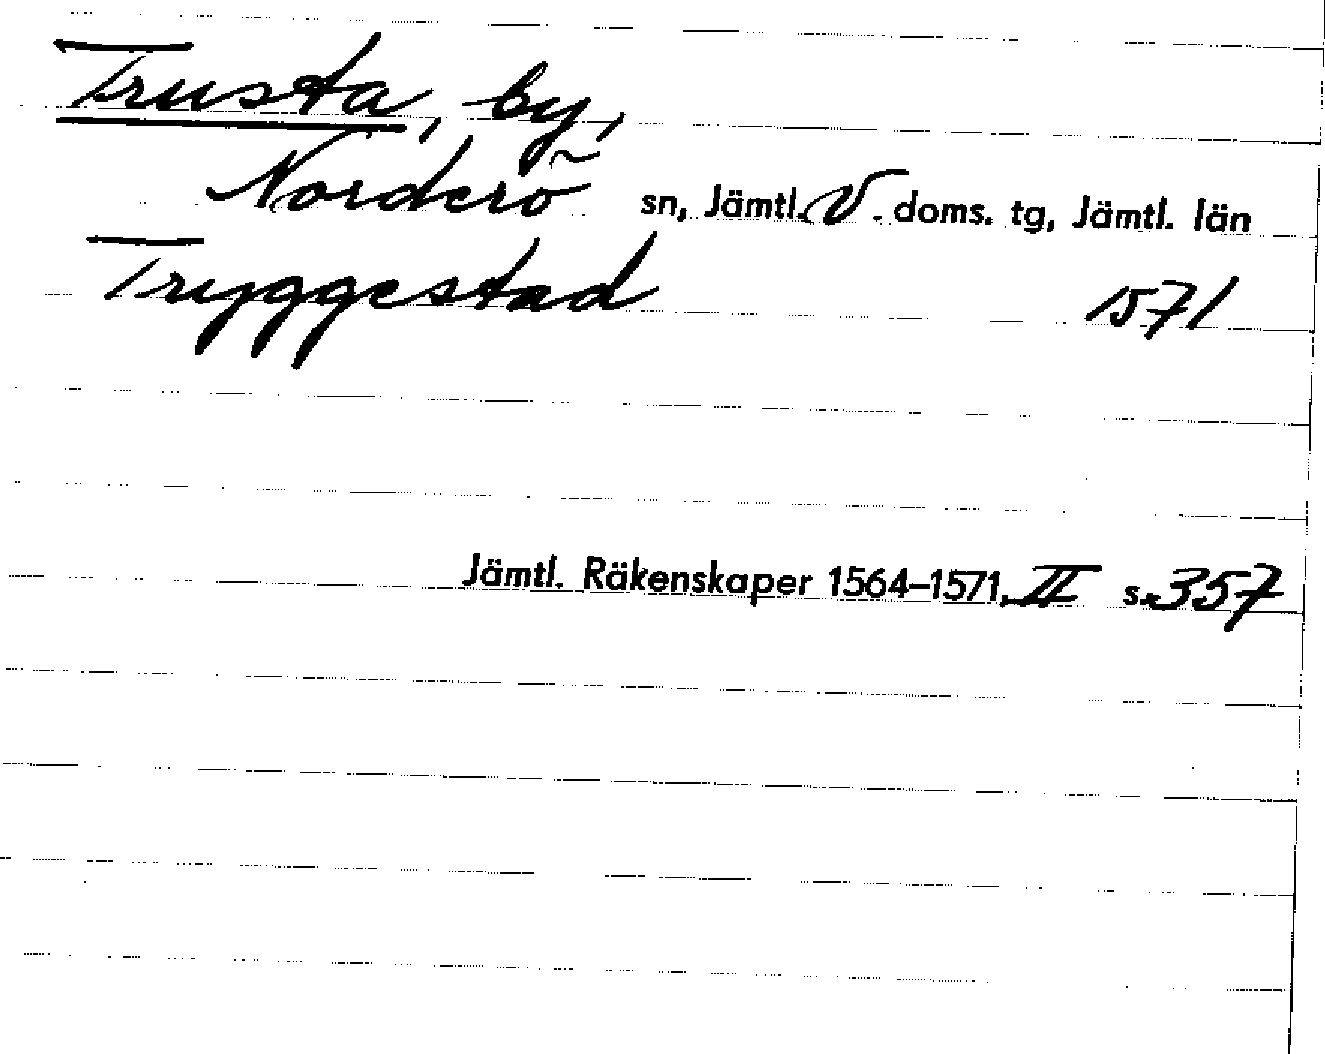 Trusta, by,
Norderö sn, Jämtl. V. doms. tg, Jämtl. län
Tryggestad 1571
Jämtl. Räkenskaper 1564–1571, II s. 357